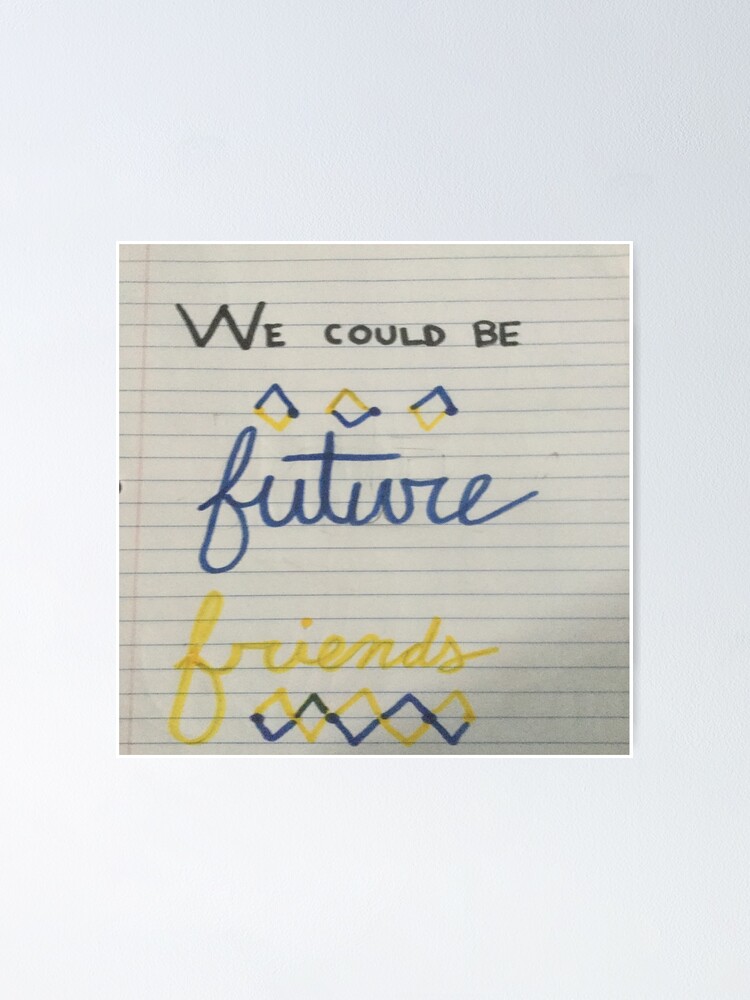 WE COULD BE
future
friends